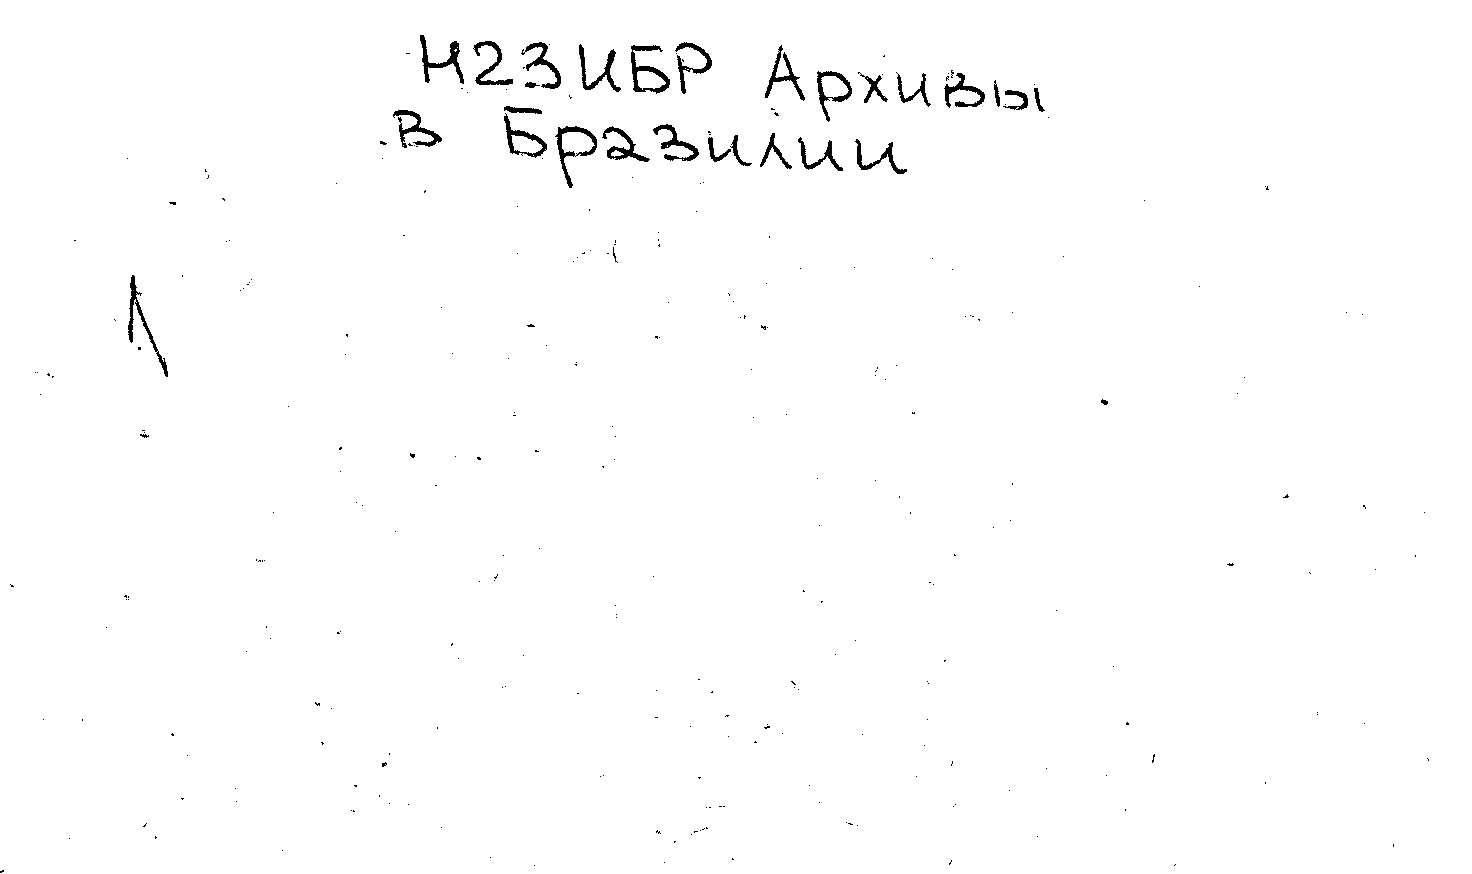 Н23ИБР Архивы
в Бразилии